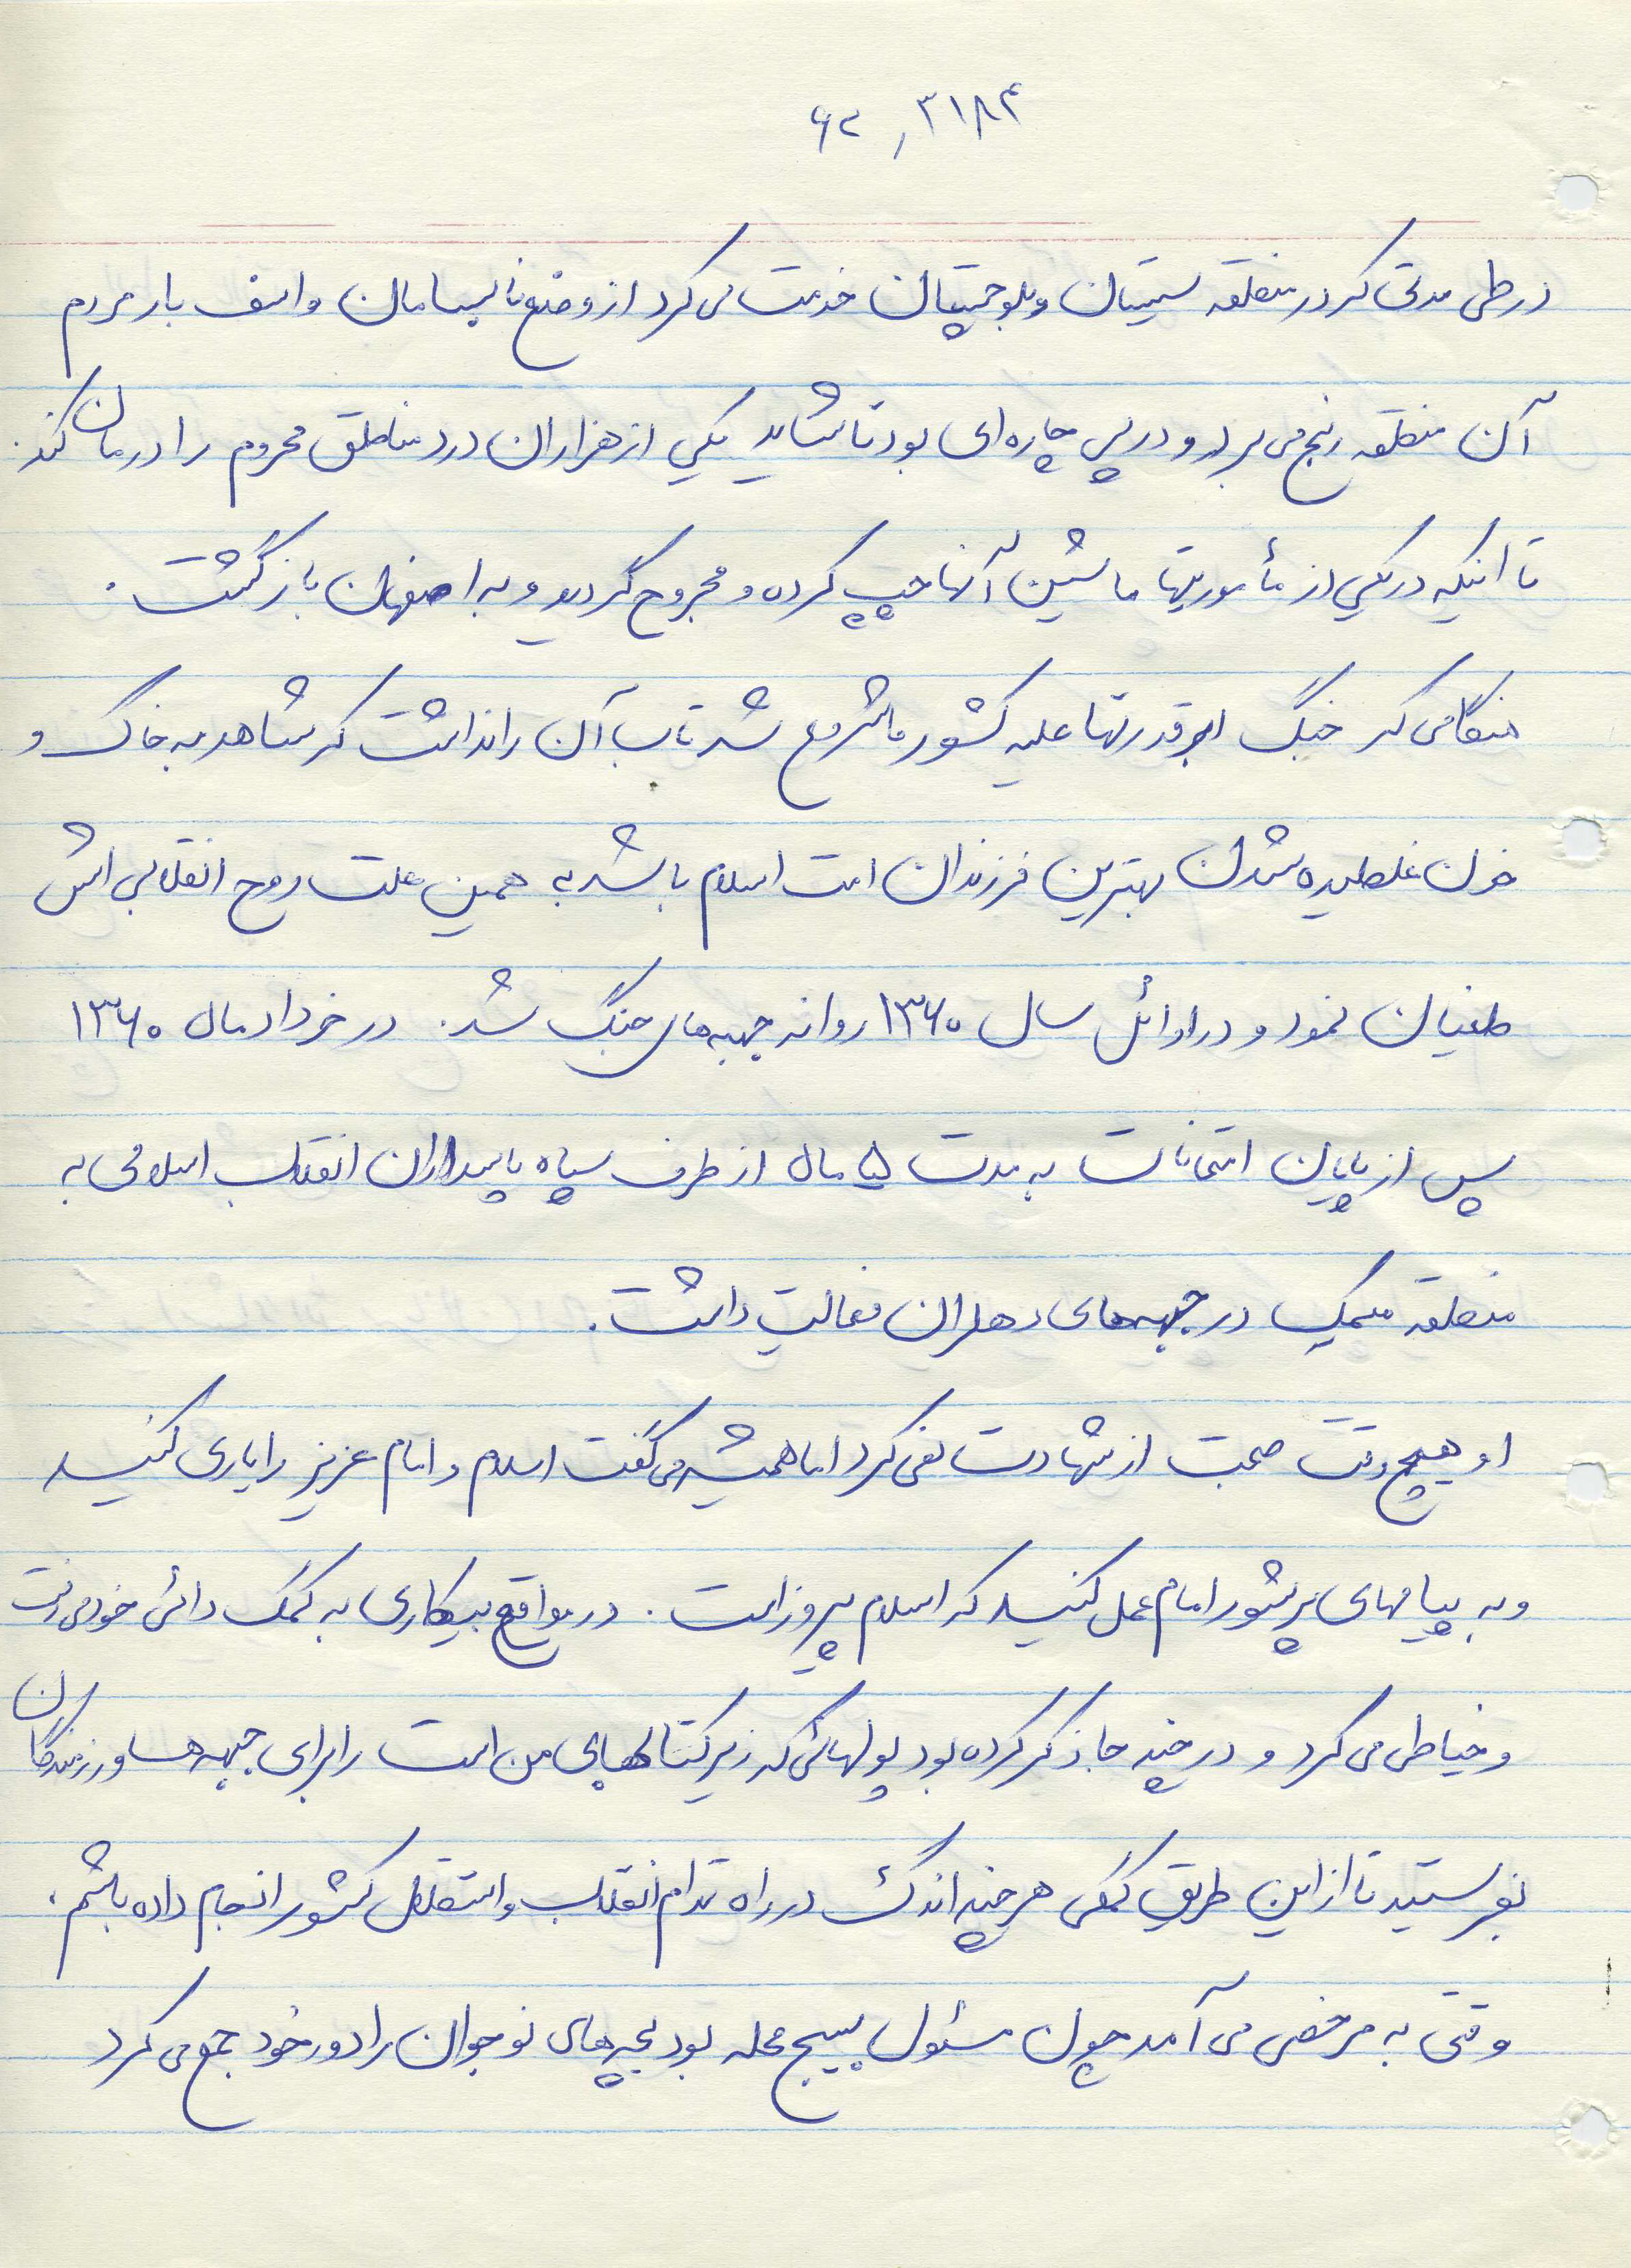 ۶۲٫۳۱۸۴
در طی مدتی که در منطقه سیستان و بلوچستان خدمت می کرد از وضع نابسامان و اسف بار مردم
آن منطقه رنج می برد و در پی چاره ای بود تا شاید یکی از هزاران درد مناطق محروم را درمان کند.
تا اینکه در یکی از مأموریتها ماشین آنها چپ کرده و مجروح گردید و به اصفهان بازگشت.
هنگامی که جنگ ابرقدرتها علیه کشور ما شروع شد تاب آن را نداشت که شاهد به خاک و
خون غلطیده شدن بهترین فرزندان امت اسلام باشد به همین علت روح انقلابی اش
طغیان نمود و در اوائل سال ۱۳۶۰ روانه جبهه های جنگ شد. در خرداد ماه ۱۳۶۰
پس از پایان امتحانات به مدت ۵ ماه از طرف سپاه پاسداران انقلاب اسلامی به
منطقه در جبهه های دهلران فعالیت داشت.
او هیچ وقت صحبت از شهادت نمی کرد اما همیشه می گفت اسلام و امام عزیز را یاری کنید
و به پیامهای پرشور امام عمل کنید که اسلام پیروز است. در مواقع بیکاری به کمک دائی خود می رفت
و خیاطی می کرد و در چند جا ذکر کرده بود پولهائی که زیر کتابهای من است را برای جبهه ها و رزمندگان
بفرستید تا از این طریق کمکی هر چند اندک در راه تداوم انقلاب و استقلال کشور انجام داده باشم.
وقتی به مرخصی می آمد چون مسئول بسیج محله بود بچه های نوجوان را دور خود جمع می کرد